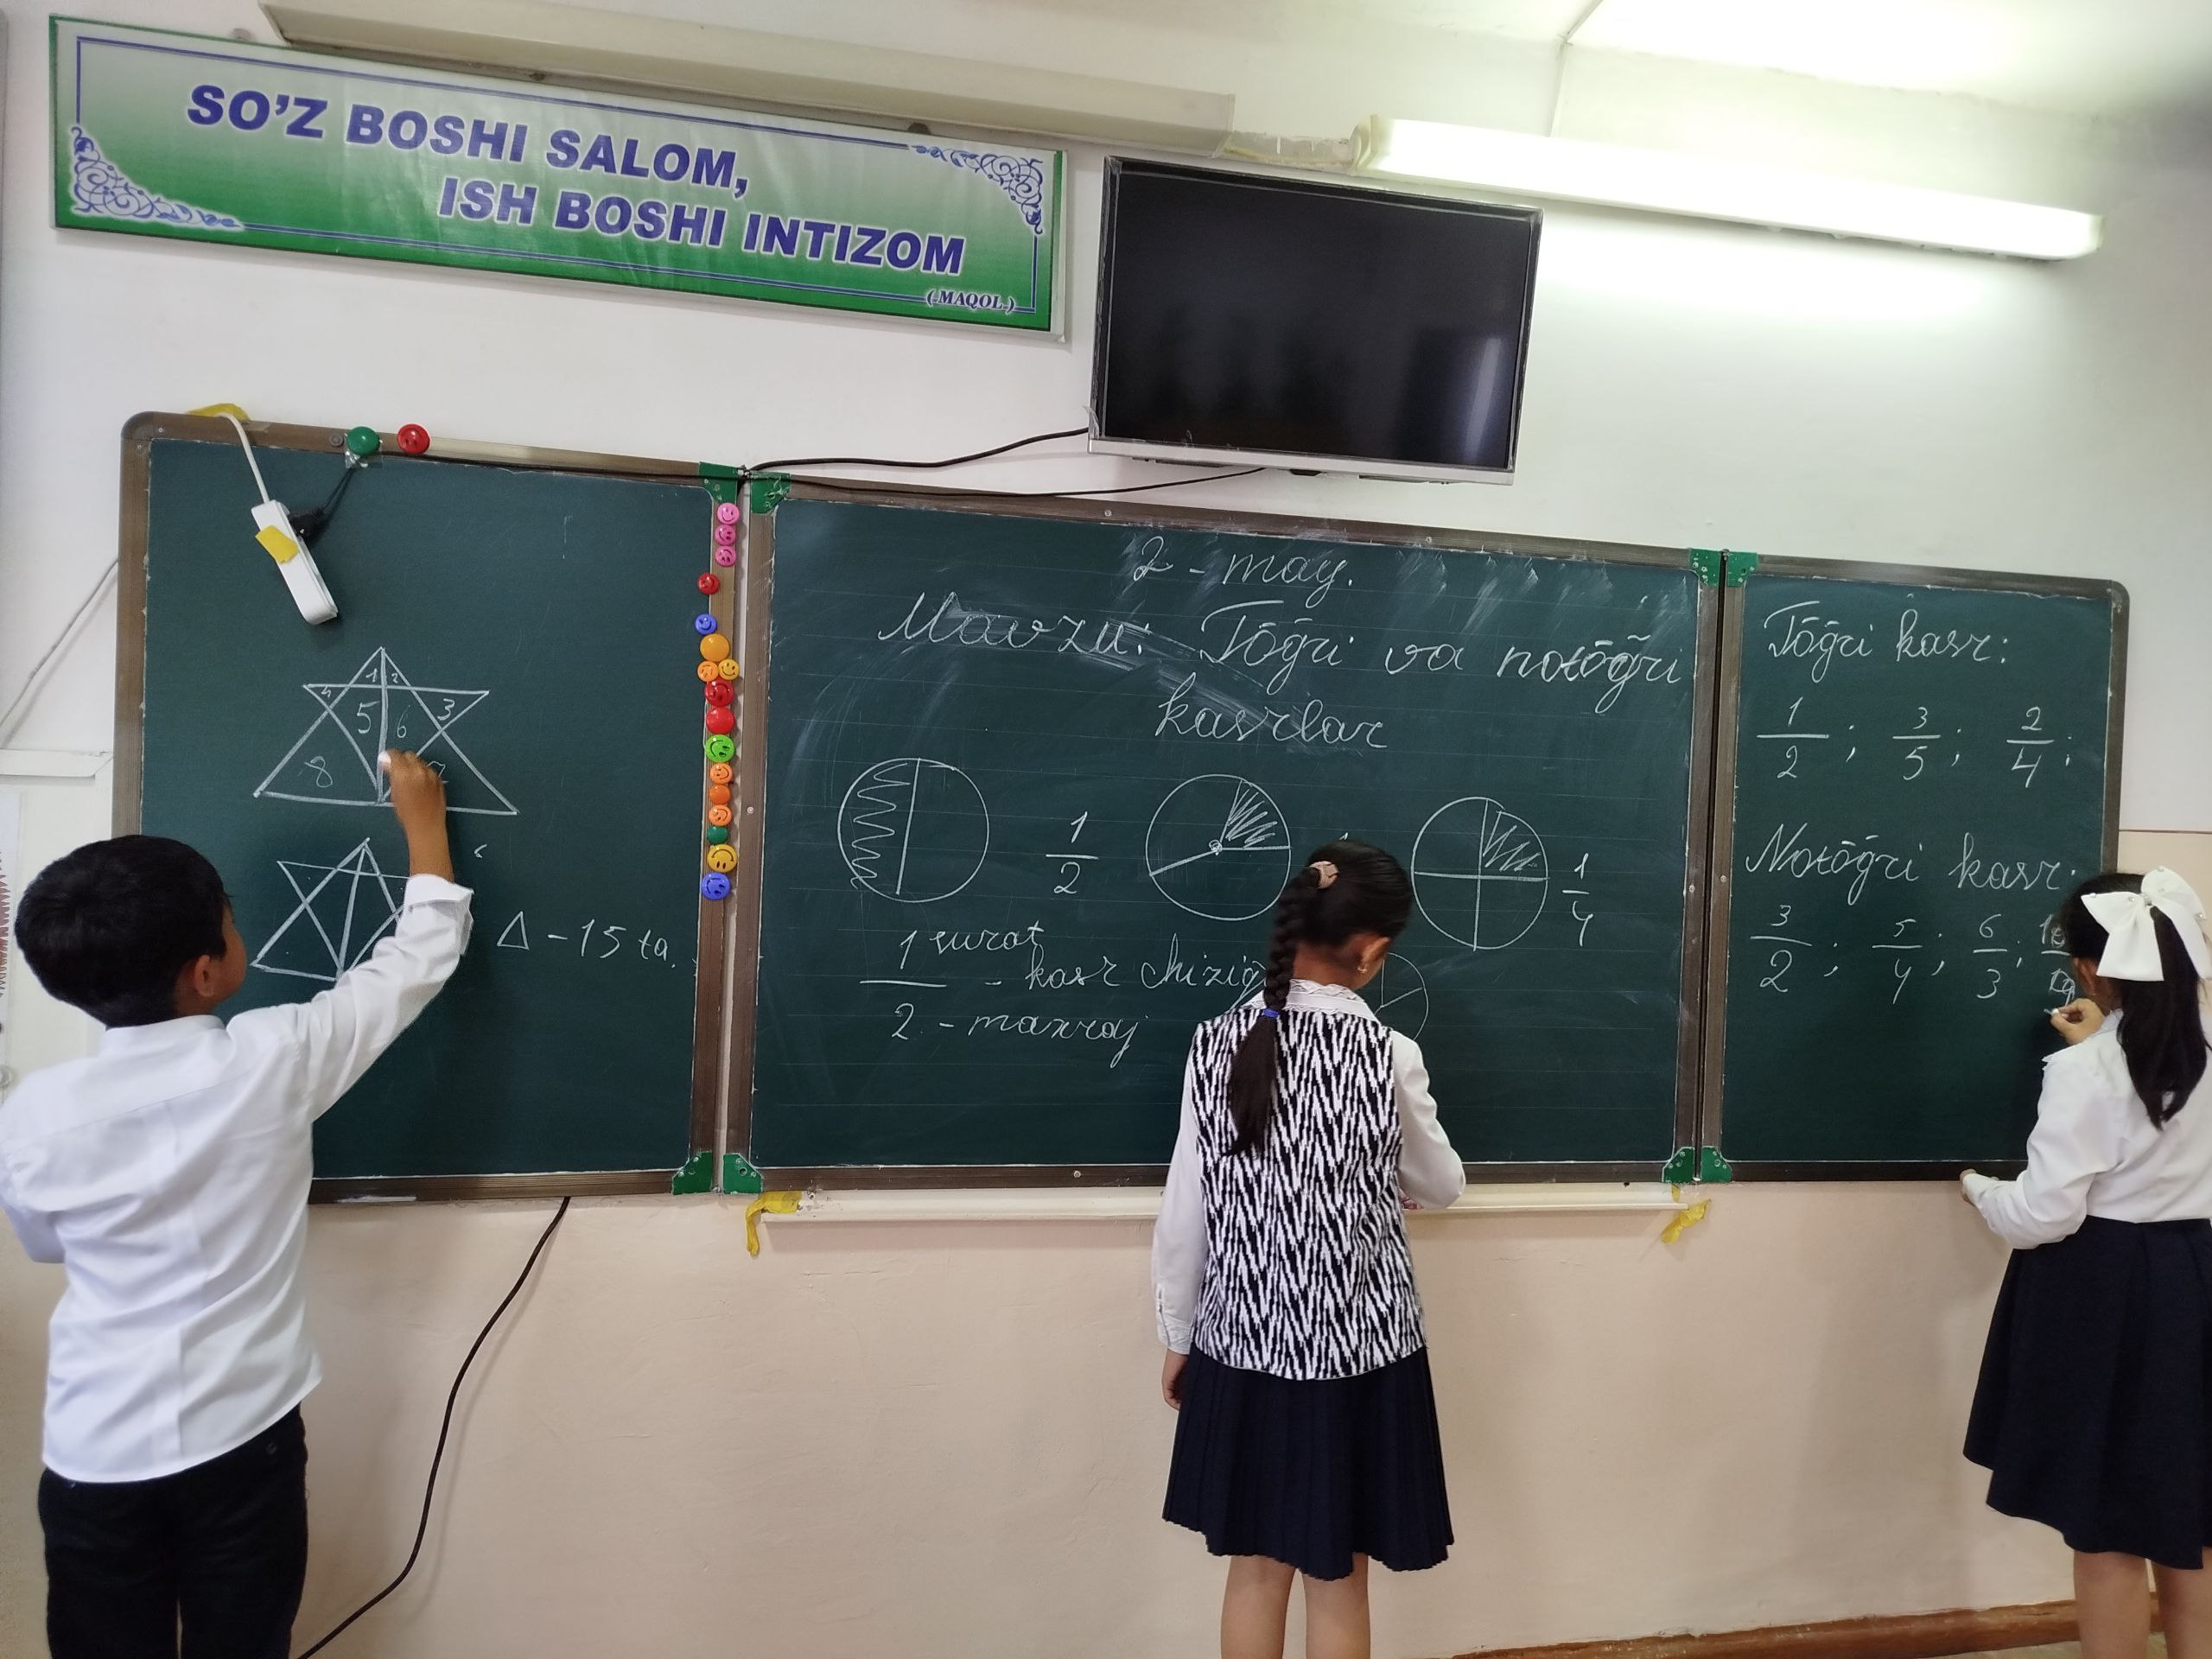 SO'Z BOSHI SALOM,
ISH BOSHI INTIZOM
(MAQOL)
1 2
4 5 6 3
8 7
Δ - 15 ta.
2 - may.
Mavzu: Tōğri va notōğri
kasrlar
1/2
1/4
1 surat
- kasr chizig
2 - maxraj
Tōğri kasr:
1/2 ; 3/5 ; 2/4 ;
Notōğri kasr:
3/2 ; 5/4 ; 6/3 ;